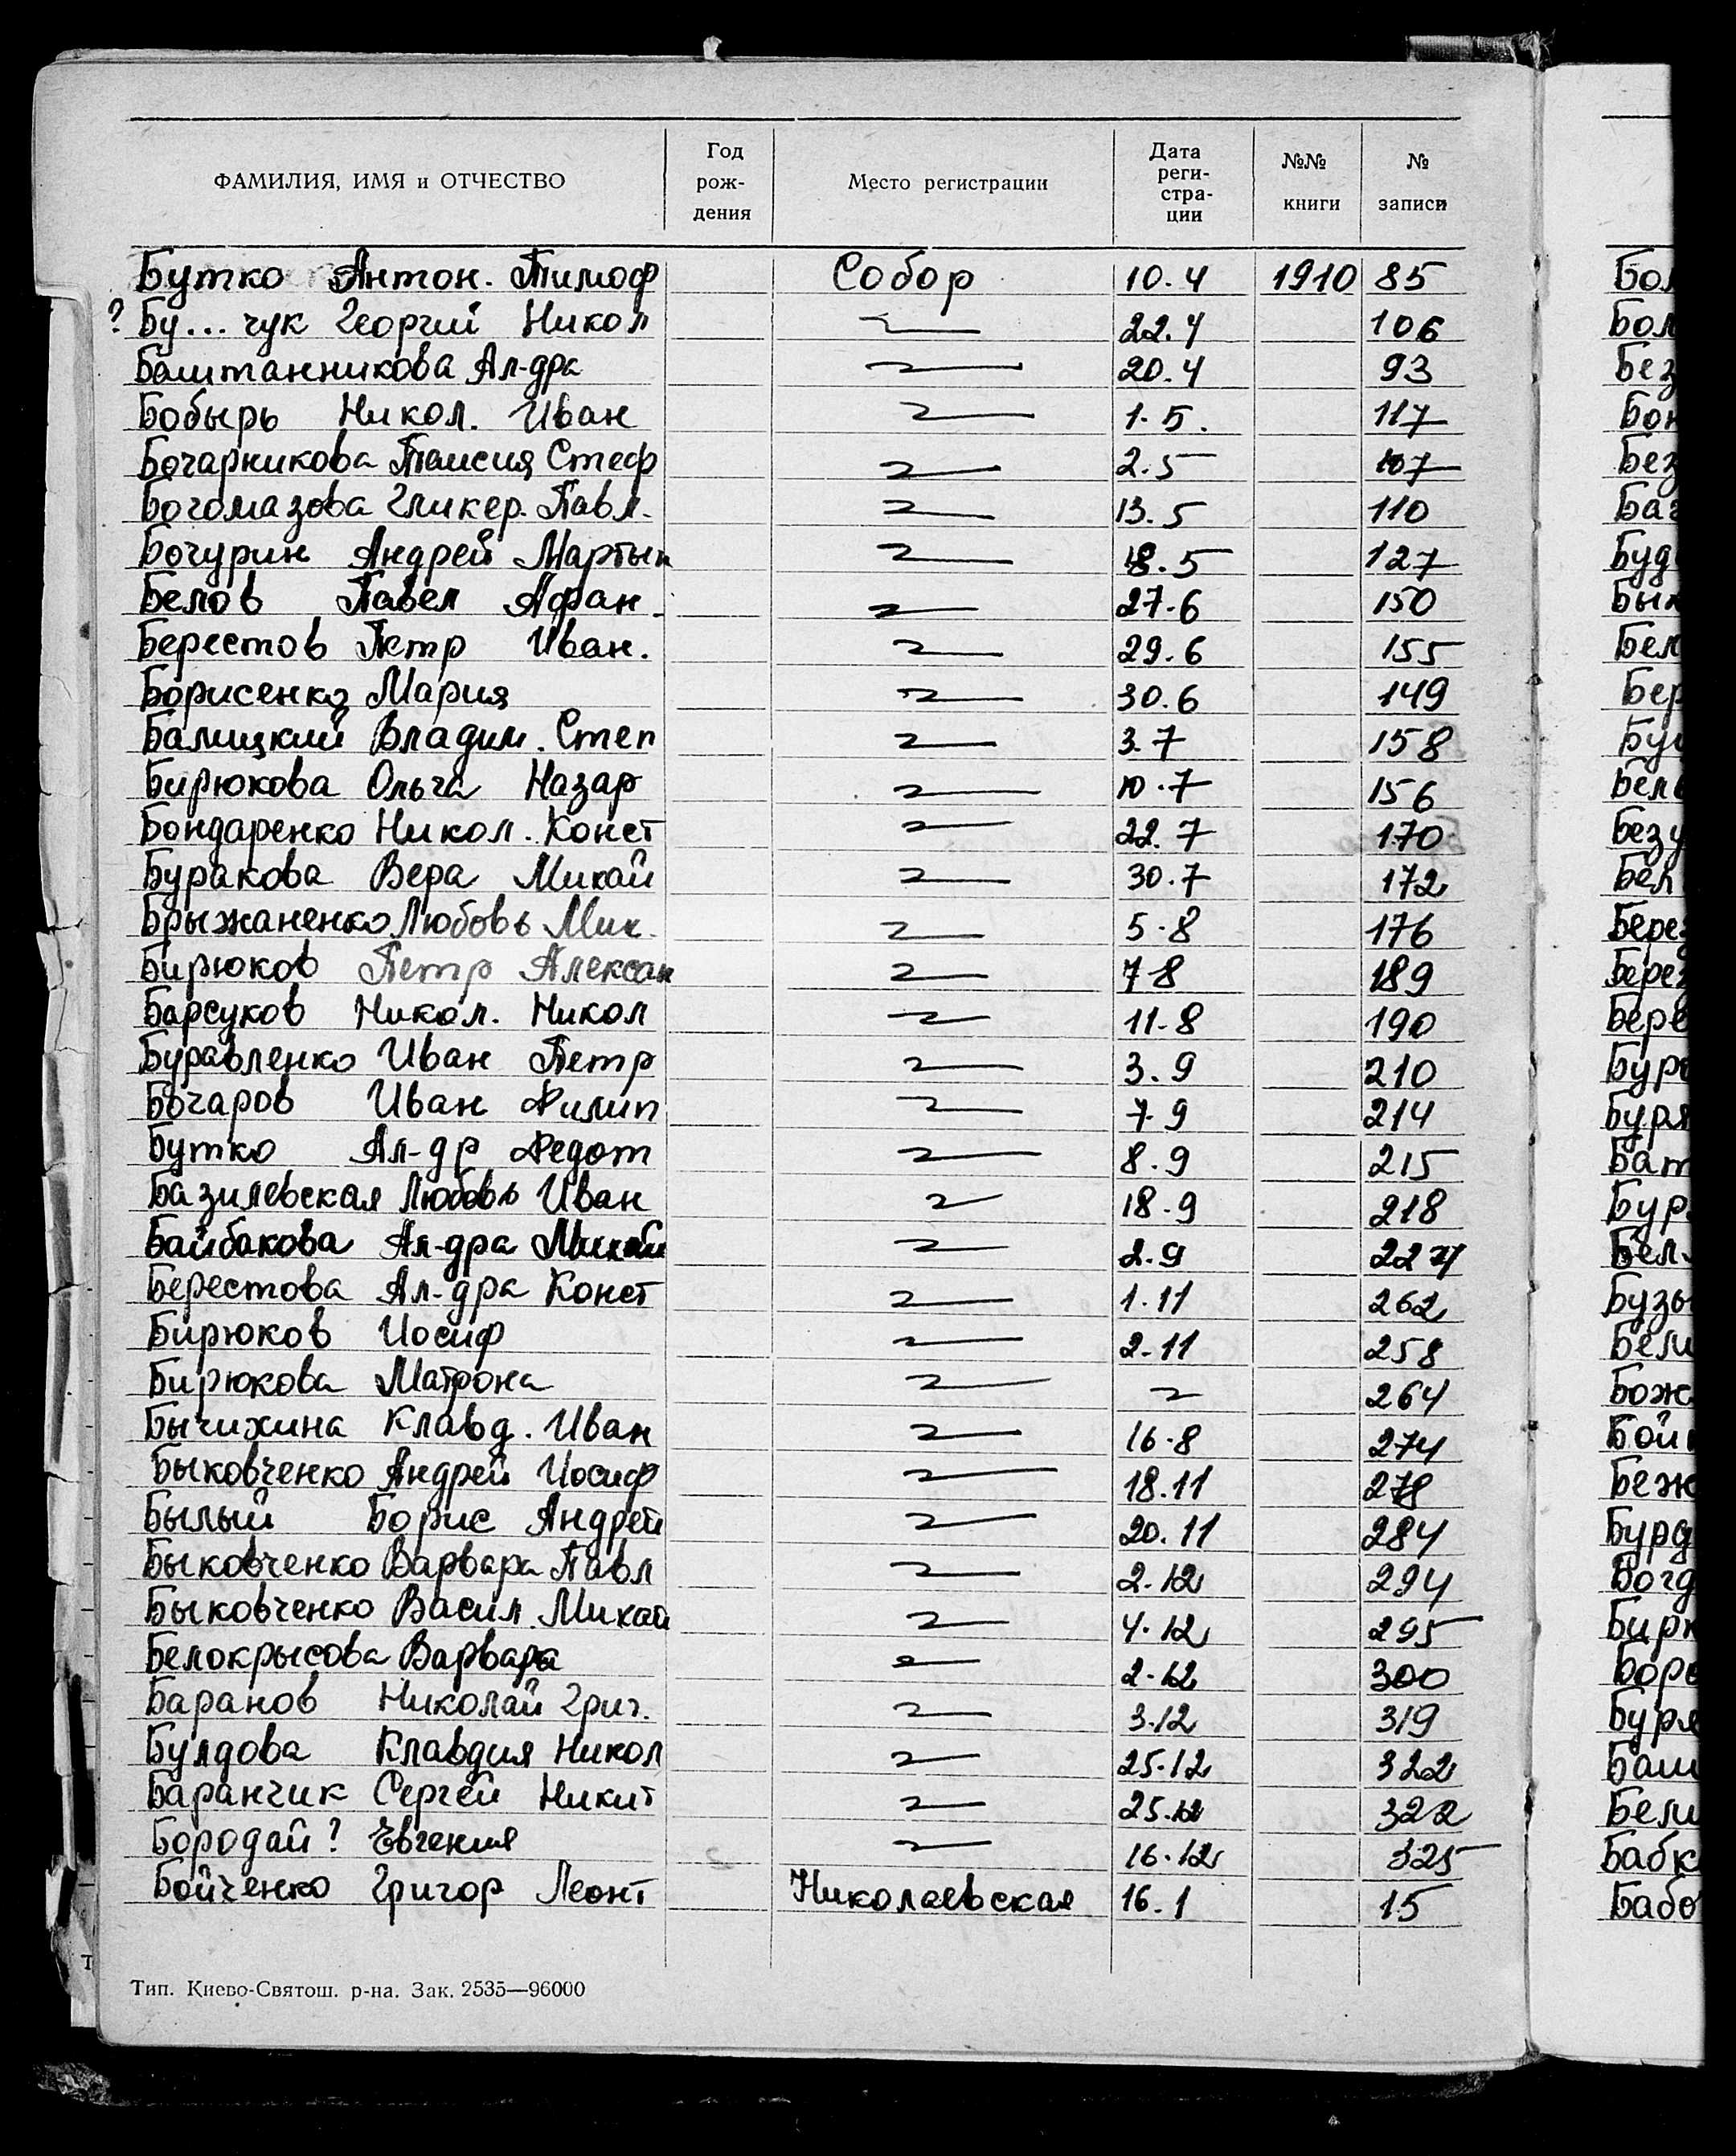 ФАМИЛИЯ, ИМЯ и ОТЧЕСТВО Год рож-дения Место регистрации Дата реги-стра-ции №№ книги № записи
Бутко Антон. Тимоф Собор 10.4 1910 85
? Бу...чук Георгий Никол 22.4 106
Баштанникова Ал-дра 20.4 93
Бобырь Никол. Иван 1.5. 117
Бочарникова Таисия Стеф 2.5 107
Богомазова Гликер. Павл. 13.5 110
Бочурин Андрей Мартын 18.5 127
Белов Павел Афан. 27.6 150
Берестов Петр Иван. 29.6 155
Борисенко Мария 30.6 149
Балицкий Владим. Степ 3.7 158
Бирюкова Ольга Назар 10.7 156
Бондаренко Никол. Конст 22.7 170
Буракова Вера Михай 30.7 172
Брыжаненко Любовь Мих. 5.8 176
Бирюков Петр Алексан 7-8 189
Барсуков Никол. Никол 11-8 190
Буравленко Иван Петр 3.9 210
Бочаров Иван Филип 7.9 214
Бутко Ал-др Федот 8.9 215
Базилевская Любовь Иван 18.9 218
Байбакова Ал-дра Михай 2.9 224
Берестова Ал-дра Конст 1.11 262
Бирюков Иосиф 2-11 258
Бирюкова Матрона 264
Бычихина Клавд. Иван 16.8 274
Быковченко Андрей Иосиф 18.11 278
Былый Борис Андрей 20.11 284
Быковченко Варвара Павл 2.12 294
Быковченко Васил. Михай 4.12 295
Белокрысова Варвара 2-12 300
Баранов Николай Григ. 3.12 319
Булдова Клавдия Никол 25.12 322
Баранчик Сергей Никит 25.12 322
Бородай? Евгения 16.12 325
Бойченко Григор Леонт Николаевская 16.1 15
Тип. Киево-Святош. р-на. Зак. 2535—96000